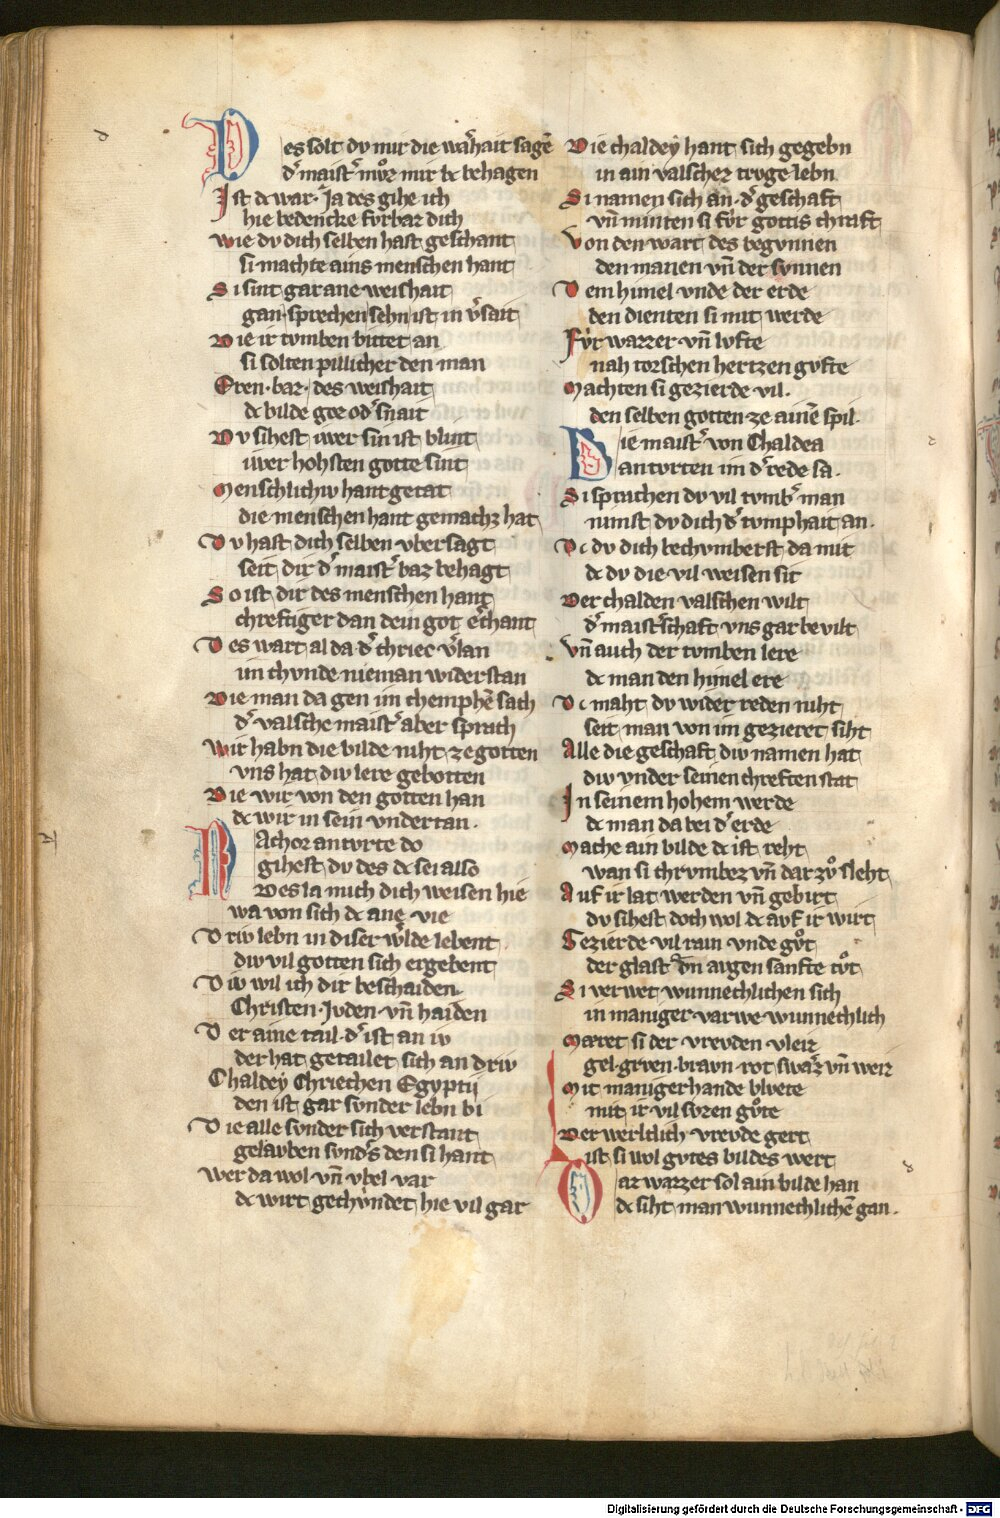 Des solt dv mir die wārhait sagē
d' maist' mvͦz mir dc behagen
Ist dc war · Ja des gihe ich
hie bedencke fvrbaz dich
Wie dv dich selben hast geschant
si machte ains menschen hant
Si sint gar ane weishait
gan · sprechen sehn ist in v'sait
Die ir tvmben bittet an
si solten pillicher den man
Eren · baz · des weishait
dc bilde goz od' snait
Dv sihest iwer sin ist blint
iwer hohsten gotte sint
Menschlichiv hantgetat
die menschen hant gemachz hat
Dv hast dich selben vbersagt
seit dir d' maist' baz behagt
So ist dir des menschen hant
chreftiger dan dein got e'chant
Des wart al da d' chriec v'lan
im chvnde nieman widerstan
Die man da gen im chemphē sach
d' valsche maist' aber sprach
Wir habn die bilde niht ze gotten
vns hat div lere gebotten
Die wir von den gotten han
dc wir in sein vndertan ·
Nachor antvrte do
gihest dv des dc sei also
Des la mich dich weisen hie
wa von sich dc ane vie
Driv lebn in diser w'lde lebent
div vil gotten sich ergebent
Div wil ich dir beschaiden
Christen · Jvden · vn̄ haiden
Der aine tail · d' ist an iv
der hat getailet sich an driv
Chaldey Chriechen Egyptij
den ist gar svnder lebn bi
Die alle svnder sich verstant
gelavben svnd's den si hant
Wer da wol vn̄ vbel var
dc wirt gechvndet hie vil gar
Die chaldey hant sich gegebn
in ain valschez trvge lebn
Si namen sich an · d' geschaft
vn̄ minten si fvr gottis chraft
Von den wart des begvnnen
den manen vn̄ der svnnen
Dem himel vnde der erde
den dienten si mit werde
Fvr wazzer vn̄ lvfte
nah torschen hertzen gvfte
Machten si gezierde vil ·
den selben gotten ze ainē spil ·
Die maist' von Chaldea
antvrten im d' rede sa ·
Si sprachen dv vil tvmb' man
nimst dv dich d' tvmphait an ·
Dc dv dich bechvmberst da mit
dc dv die vil weisen sit
Der chalden valschen wilt
d' maist'schaft vns gar bevilt
Vn̄ auch der tvmben lere
dc man den himel ere
Dc maht dv wider reden niht
seit man von im gezieret siht
Alle die geschaft div namen hat
div vnder seinen chreften stat
In seinem hohem werde
dc man da bei d' erde
Mache ain bilde dc ist reht
wan si chrvmbez vn̄ dar zvͦ sleht
Auf ir lat werden vn̄ gebirt
dv sihest doch wol dc avf ir wirt
Gezierde vil rain vnde gvͦt
der glast dn̄ augen sanfte tvͦt
Si verwet wunnechlichen sich
in maniger varwe wunnechlich
Maret si der vrevden vleiz
gel · grven · bravn · rot swarz vn̄ weiz
Mit maniger hande blvete
mit ir vil svzen gvͦte
Der werltlich vrevde gert
ist si wol gvtes bildes wert
Daz wazzer sol ain bilde han
dc siht man wunnechlichē gan ·
Digitalisierung gefördert durch die Deutsche Forschungsgemeinschaft - DFG